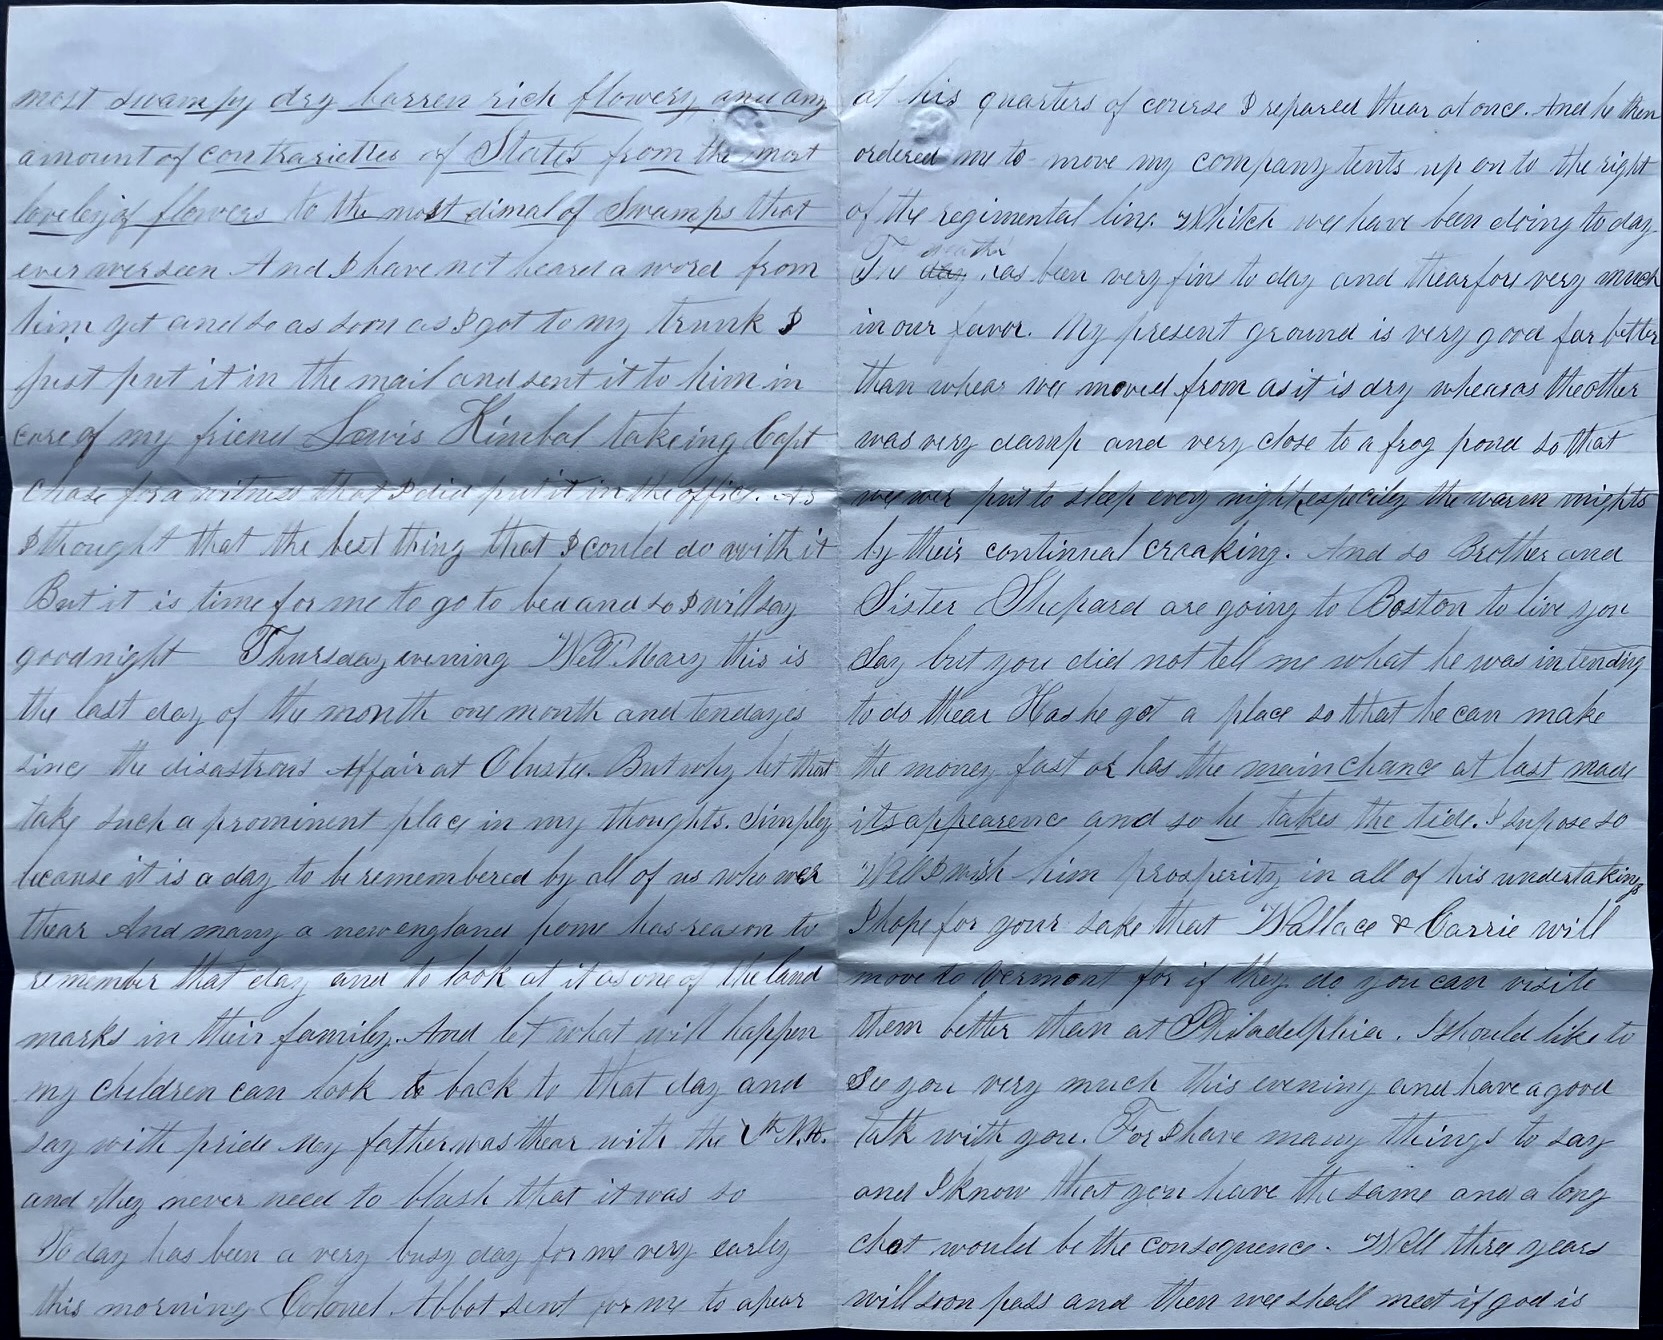 most swampy dry barren rich flowery and any
amount of contrarieties of States from the most
loveley of flowers to the most dimal of Swamps that
ever aver seen And I have not heard a word from
him yet and so as soon as I got to my trunk I
just put it in the mail and sent it to him in
care of my friend Lewis Kimbal takeing Capt
Chase for a witness that I did put it in the office. As
I thought that the best thing that I could do with it
But it is time for me to go to bed and so I will say
goodnight Thursday evening Well Mary this is
the last day of the month one month and ten dayes
since the disastrous Affair at Olustee. But why let that
take such a prominent place in my thoughts. Simpley
because it is a day to be remembered by all of us who wer
thear And many a new england home has reason to
remember that day and to look at it as one of the land
marks in their familey. And let what will happen
my children can look to back to that day and
say with pride My father was thear with the 7th N.H.
and they never need to blush that it was so
To day has been a very busy day for me very earley
this morning Colonel Abbot sent for me to apear
at his quarters of course I repared thear at once. And he then
ordered me to move my company tents up on to the right
of the regimental line. Whitch wee have been doing to day
The day weather has been very fine to day and thearfore very much
in our favor. My present ground is very good far better
than whear wee moved from as it is dry wheareas the other
was very damp and very close to a frog pond so that
wee wer put to sleep every night, especiley the warm nights
by their continual croaking. And so Brother and
Sister Shepard are going to Boston to live you
Say but you did not tell me what he was intending
to do thear Has he got a place so that he can make
the money fast or has the main chance at last made
its appearence and so he takes the tide. I supose so
Well I wish him prosperity in all of his undertakings
I hope for your sake that Wallace & Carrie will
move to Vermont for if they do you can visite
them better than at Philadelphia. I should like to
See you very much this evening and have a good
talk with you. For I have many things to say
and I know that you have the same and a long
chat would be the consequence. Well three years
will soon pass and then wee shall meet if god is